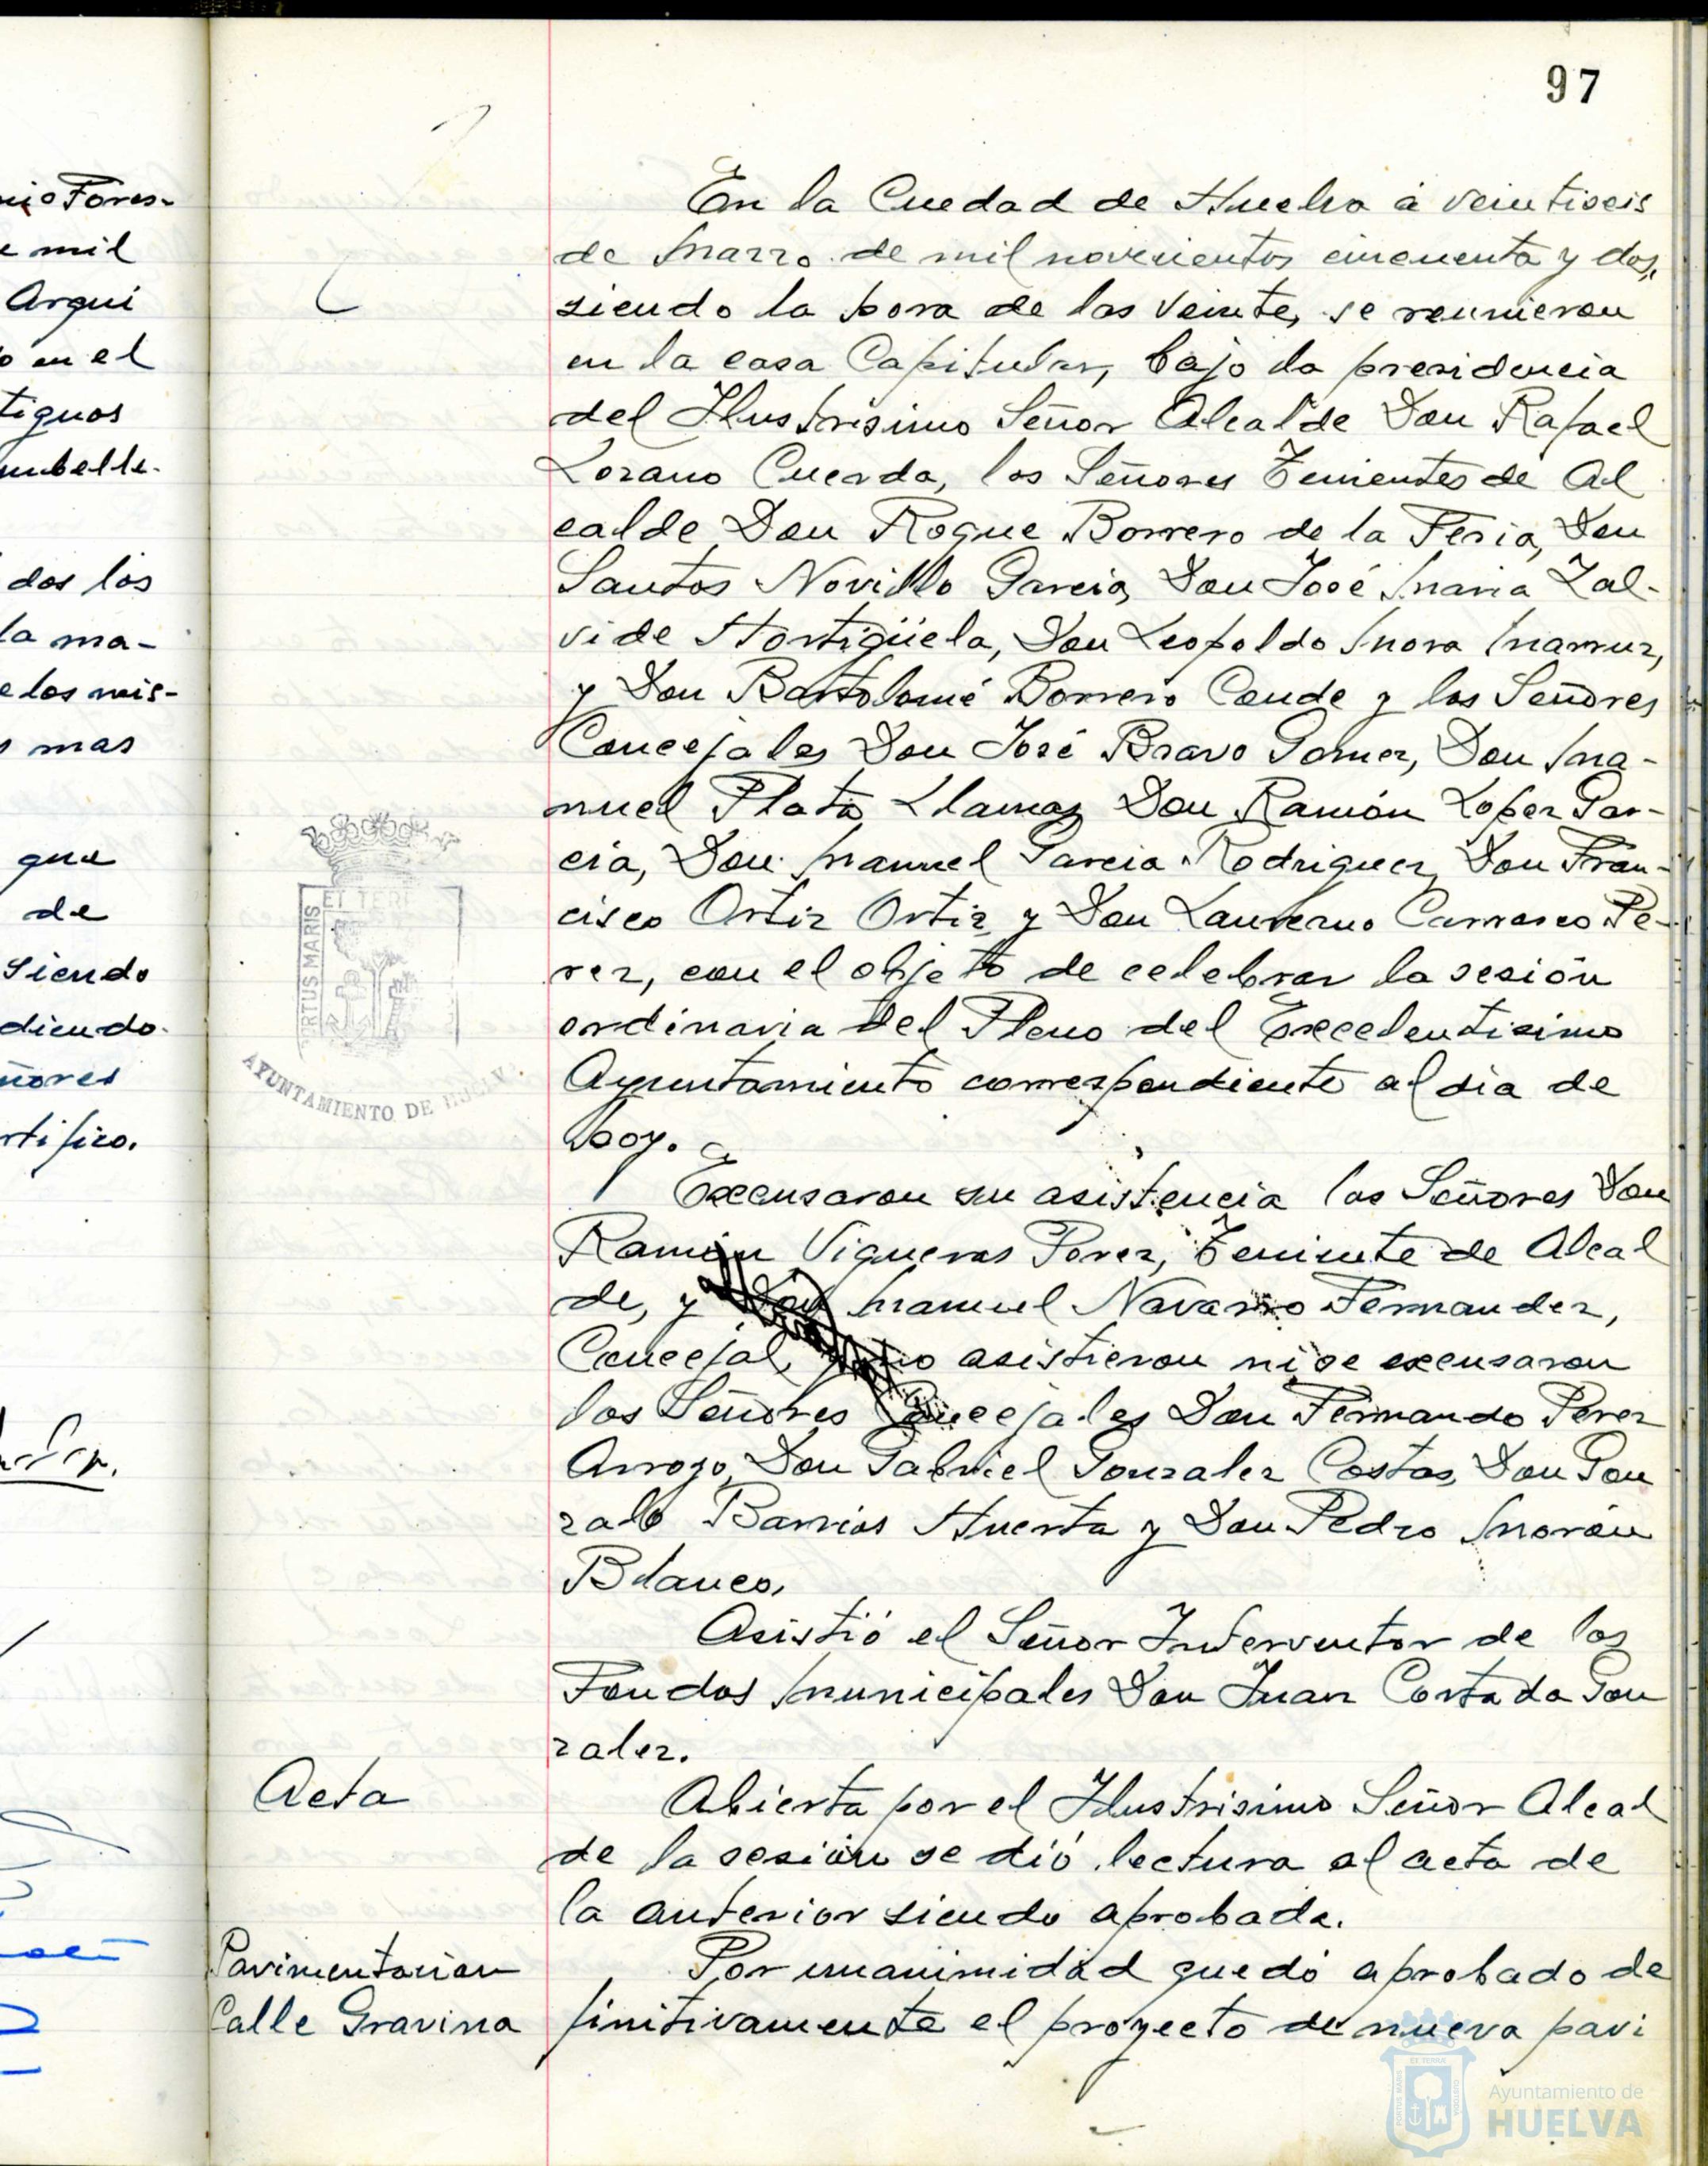 97
nio Fores-
e mil
Arqui
o en el
tiguos
mbelle-
dos los
la ma-
e los mis-
s mas
que
de
siendo
diendo
ñores
rtifico.
En la Ciudad de Huelva á veintiseis
de Marzo de mil novecientos cincuenta y dos,
siendo la hora de las veinte, se reunieron
en la casa Capitular, bajo la presidencia
del Ilustrisimo Señor Alcalde Don Rafael
Lozano Cuerda, los Señores Tenientes de Al
calde Don Roque Borrero de la Feria, Don
Santos Novillo Garcia, Don José Maria Zal-
vide Hortigüela, Don Leopoldo Mora Marruz,
y Don Bartolomé Borrero Conde y los Señores
Concejales Don José Bravo Gomez, Don Ma-
nuel Plata Llamas Don Ramón Lopez Gar-
cia, Don Manuel Garcia Rodriguez, Don Fran-
cisco Ortiz Ortiz y Don Laureano Carrasco Pe-
rez, con el objeto de celebrar la sesión
ordinaria del Pleno del Excelentisimo
Ayuntamiento correspondiente al dia de
hoy.
Excusaron su asistencia los Señores Don
Ramón Vigueras Perez, Teniente de Alcal
de, y Don Manuel Navarro Fernandez,
Concejal, y no asistieron ni se excusaron
los Señores Concejales Don Fernando Perez
Arroyo, Don Gabriel Gonzalez Costas, Don Gon
zalo Barrios Huerta y Don Pedro Morón
Blanco.
Asistió el Señor Interventor de los
Fondos Municipales Don Juan Cortada Gon
zalez.
Acta
Abierta por el Ilustrisimo Señor Alcal
de la sesión se dió lectura al acta de
la anterior siendo aprobada.
Pavimentacion
Calle Gravina
Por unanimidad quedó aprobado de
finitivamente el proyecto de nueva pavi
ET TERR
RTUS MARIS
AYUNTAMIENTO DE HUELVA
Ayuntamiento de
HUELVA